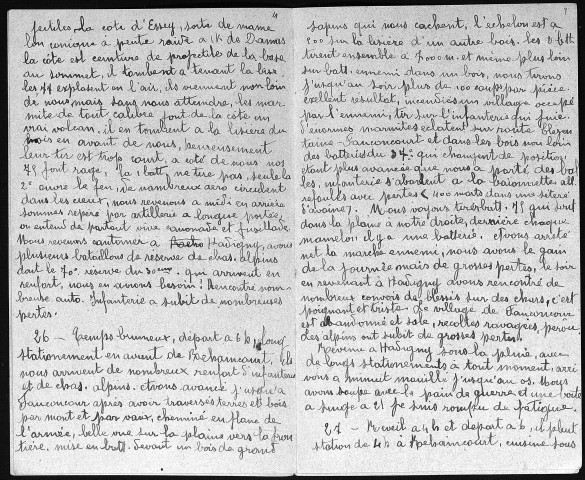 fertiles. La côte d'Essey, sorte de mame
lon conique à pente raide à 1K de Damas
la côte est ceinture de projectile de la base
au sommet, il tombent à tenant la bise
les 77 explosent en l'air, ils viennent non loin
de nous, mais sans nous atteindre, les mar
mite de tout calibre font de la côte un
vrai volcan, il en tombent à la lisière du
bois en avant de nous, heureusement
leur tir est trop court, a coté de nous nos
75 font rage, la 1 batt, ne tire pas, seule la
2e ouvre le feu, de nombreux aero circulent
dans les cieux, nous revenons à midi en arrière
sommes repéré par artillerie à longue portée,
on entend de partout vive canonade et fusillade.
Nous revenons cantonner à Hadigny, avons
plusieurs bataillons de réserve de chas. alpins
dont le 70e reserve du 30eme qui arrivent en
renfort, nous en avons besoin! Rencontre nom-
breuse auto. Infanterie a subit de nombreuses
pertes.
26 - Temps brumeux, départ à 6h, long
stationnement en avant de Rehamcourt, 4h
nous arrivent de nombreux renfort d'infanterie
et de chas. alpins. Avons avancé jusqu'à
Fauconcour après avoir traversés terres et bois
par mont et par vaux, cheminé en flanc de
l'armée, belle vue sur la plaine vers la fron
tière. mise en batt. devant un bois de grand
7
sapins qui nous cachent, l'échelon est à
200 sur la lisière d'un autre bois. les 3 batt
tirent ensemble à 7000 m. et même plus loin
sur batt. ennemi dans un bois, nous tirons
jusqu'au soir plus de 100 coups par pièce
exellent résultat, incendies un village occupé
par l'ennemi, tir sur l'infanterie qui fuie
d'énormes marmites éclatent sur route
Fauconcourt et dans les bois non loin
des batteries du 37e qui changent de position
étant plus avancée que nous a porté des bal
les, infanterie s'abordent à la baïonnette all
refoulés avec pertes (100 morts dans une litière
d'avoine). Nous voyons tirer batt. 75 qui suit
dans la plaine à notre droite, derrière chaque
mamelon il y a une batterie. Avons arrêté
net la marche ennemi, nous avons le gain
de la journée mais de grosses pertes, le soir
en revenant à Hadigny avons rencontré de
nombreux convois de blessés sur des chars, c'est
poignant et triste. Le village de Fauconcour
est abandonné et sale, recoltes ravagés perou
des alpins ont subit de grosses pertes.
Revenu à Hadigny sous la pluie, avec
de longs stationements à tout moment, arri
vons à minuit mouillé jusqu'au os. Nous
avons soupé avec le pain de guerre et une boîte
à singe à 21 je suis rompu de fatigue.
27 - Reveil à 4h et départ à 6, il pleut
station de 4h à Rehamcourt, cuisine sous